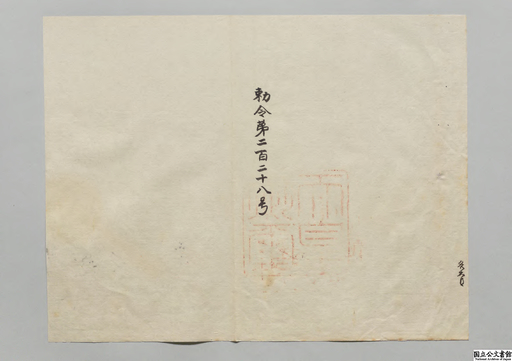 勅令第二百二十八号
国立公文書館
National Archives of Japan